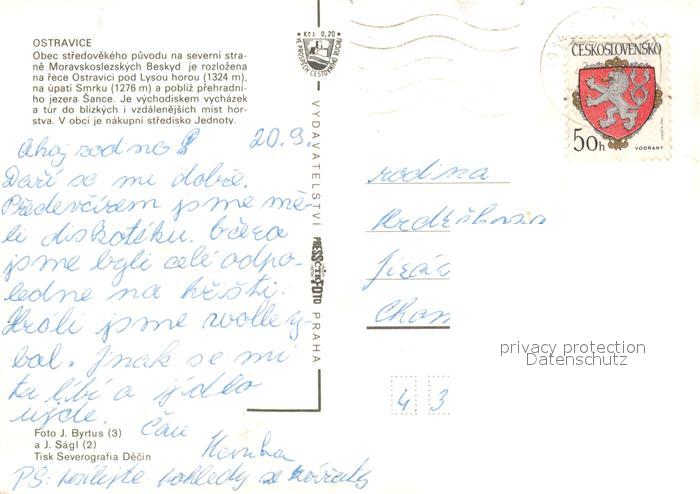 OSTRAVICE
Obec středověkého původu na severní stra-
ně Moravskoslezských Beskyd je rozložena
na řece Ostravici pod Lysou horou (1324 m),
na úpatí Smrku (1276 m) a poblíž přehradní-
ho jezera Šance. Je východiskem vycházek
a túr do blízkých i vzdálenějších míst hor-
stva. V obci je nákupní středisko Jednoty.
Ahoj rodino! 20.9.
Daří se mi dobře.
Předevčírem jsme mě-
li diskotéku. Včera
jsme byli celé odpo-
ledne na hřišti.
Hráli jsme volley-
bal. Jinak se mi
tu líbí a jídlo
ujde.
Čau
Hanka
PS: posílejte pohledy se zvířátky
Foto J. Byrtus (3)
a J. Ságl (2)
Tisk Severografia Děčín
Kčs 0,20
VE PROSPĚCH CESTOVNÍHO RUCHU
VYDAVATELSTVÍ PRESSFOTO PRAHA
ČESKOSLOVENSKO
50h
VODŇANY
rodina
Jirás
Chom
43
privacy protection
Datenschutz